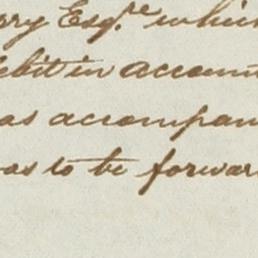 rry Esqre which
debit in accoun
as accompan
as to be forwar